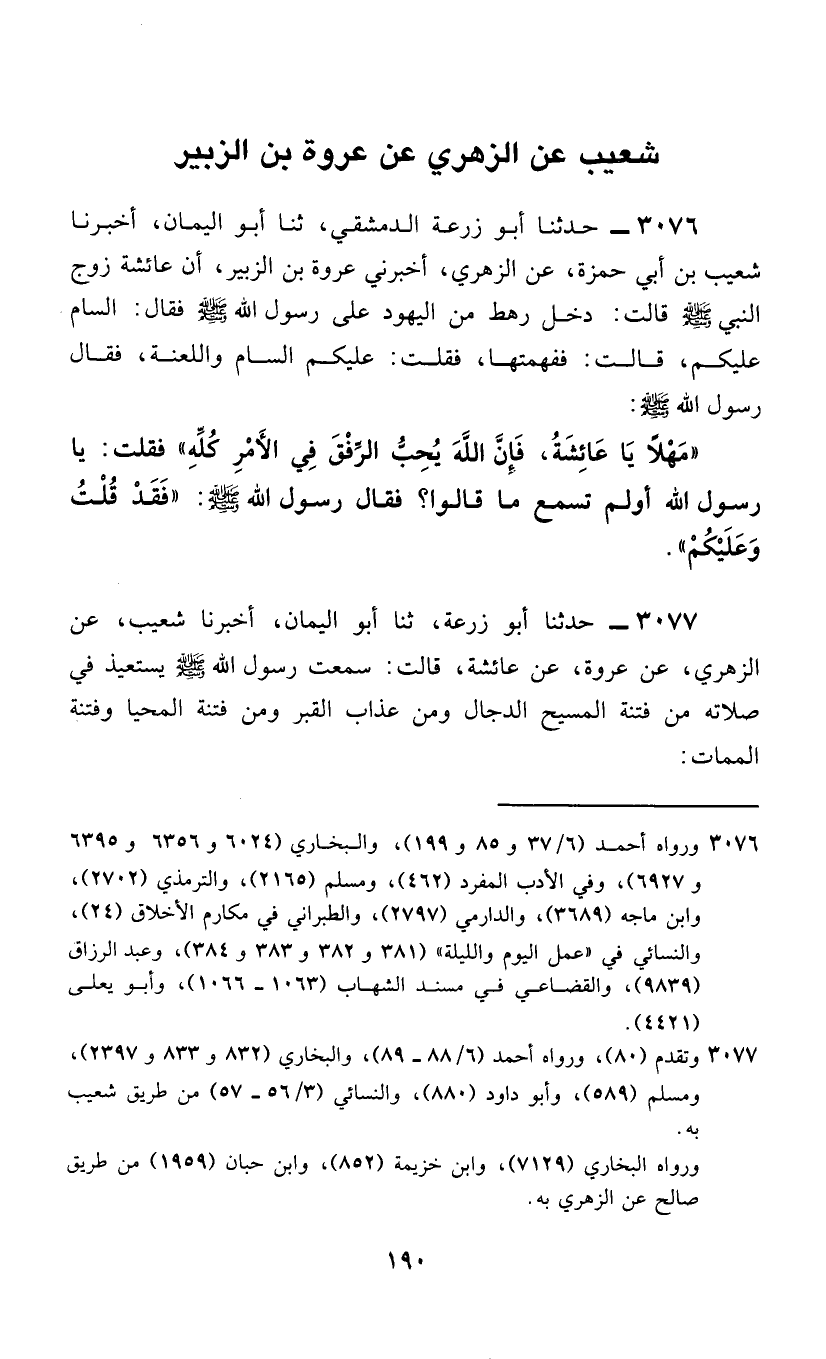 شعيب عن الزهري عن عروة بن الزبير
٣٠٧٦ ـ حدثنا أبو زرعة الدمشقي، ثنا أبو اليمان، أخبرنا
شعيب بن أبي حمزة، عن الزهري، أخبرني عروة بن الزبير، أن عائشة زوج
النبي ﷺ قالت: دخل رهط من اليهود على رسول الله ﷺ فقال: السام
عليكم، قالت: ففهمتها، فقلت: عليكم السام واللعنة، فقال
رسول الله ﷺ:
«مَهْلًا يَا عَائِشَةُ، فَإِنَّ اللَّهَ يُحِبُّ الرِّفْقَ فِي الأَمْرِ كُلِّهِ» فقلت: يا
رسول الله أولم تسمع ما قالوا؟ فقال رسول الله ﷺ: «فَقَدْ قُلْتُ
وَعَلَيْكُمْ».
٣٠٧٧ ـ حدثنا أبو زرعة، ثنا أبو اليمان، أخبرنا شعيب، عن
الزهري، عن عروة، عن عائشة، قالت: سمعت رسول الله ﷺ يستعيذ في
صلاته من فتنة المسيح الدجال ومن عذاب القبر ومن فتنة المحيا وفتنة
الممات:
٣٠٧٦ ورواه أحمد (٣٧/٦ و ٨٥ و ١٩٩)، والبخاري (٦٠٢٤ و ٦٣٥٦ و ٦٣٩٥
و ٦٩٢٧)، وفي الأدب المفرد (٤٦٢)، ومسلم (٢١٦٥)، والترمذي (٢٧٠٢)،
وابن ماجه (٣٦٨٩)، والدارمي (٢٧٩٧)، والطبراني في مكارم الأخلاق (٢٤)،
والنسائي في «عمل اليوم والليلة» (٣٨١ و ٣٨٢ و ٣٨٣ و ٣٨٤)، وعبد الرزاق
(٩٨٣٩)، والقضاعي في مسند الشهاب (١٠٦٣ ـ ١٠٦٦)، وأبو يعلى
(٤٤٢١).
٣٠٧٧ وتقدم (٨٠)، ورواه أحمد (٨٨/٦ ـ ٨٩)، والبخاري (٨٣٢ و ٨٣٣ و ٢٣٩٧)،
ومسلم (٥٨٩)، وأبو داود (٨٨٠)، والنسائي (٥٦/٣ ـ ٥٧) من طريق شعيب
به.
ورواه البخاري (٧١٢٩)، وابن خزيمة (٨٥٢)، وابن حبان (١٩٥٩) من طريق
صالح عن الزهري به.
١٩٠